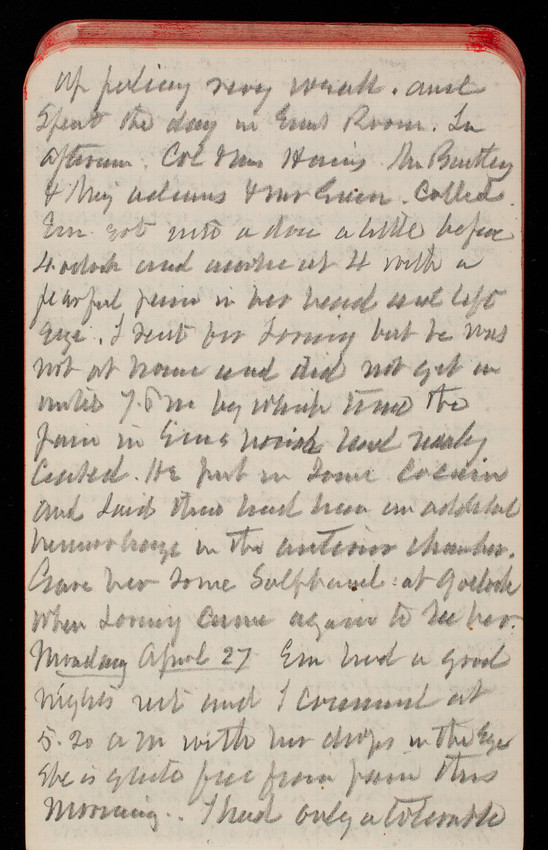 up feeling very weak. and
Spent the day in Ems Room. In
afternoon. Col & Mrs Harris. Mr Bentley
& Miss Adams & Mr Green. Called.
Em got into a doze a little before
4 oclock and awoke at 4 with a
fearful pain in her head and left
Eye. I sent for Loring but he was
not at home and did not get in
until 7.Pm by which time the
pain in Ems had nearly
Ceased. He put in Some Cocain
and Said there had been an additional
hemorrhage in the anterior chamber.
Gave her Some Sulphonal at 9 oclock
when Loring came again to See her.
Monday April 27 Em had a good
nights rest and I commenced at
5.20 am with her drops in the Eye
She is quite free from pain this
morning.. I had only a tolerable